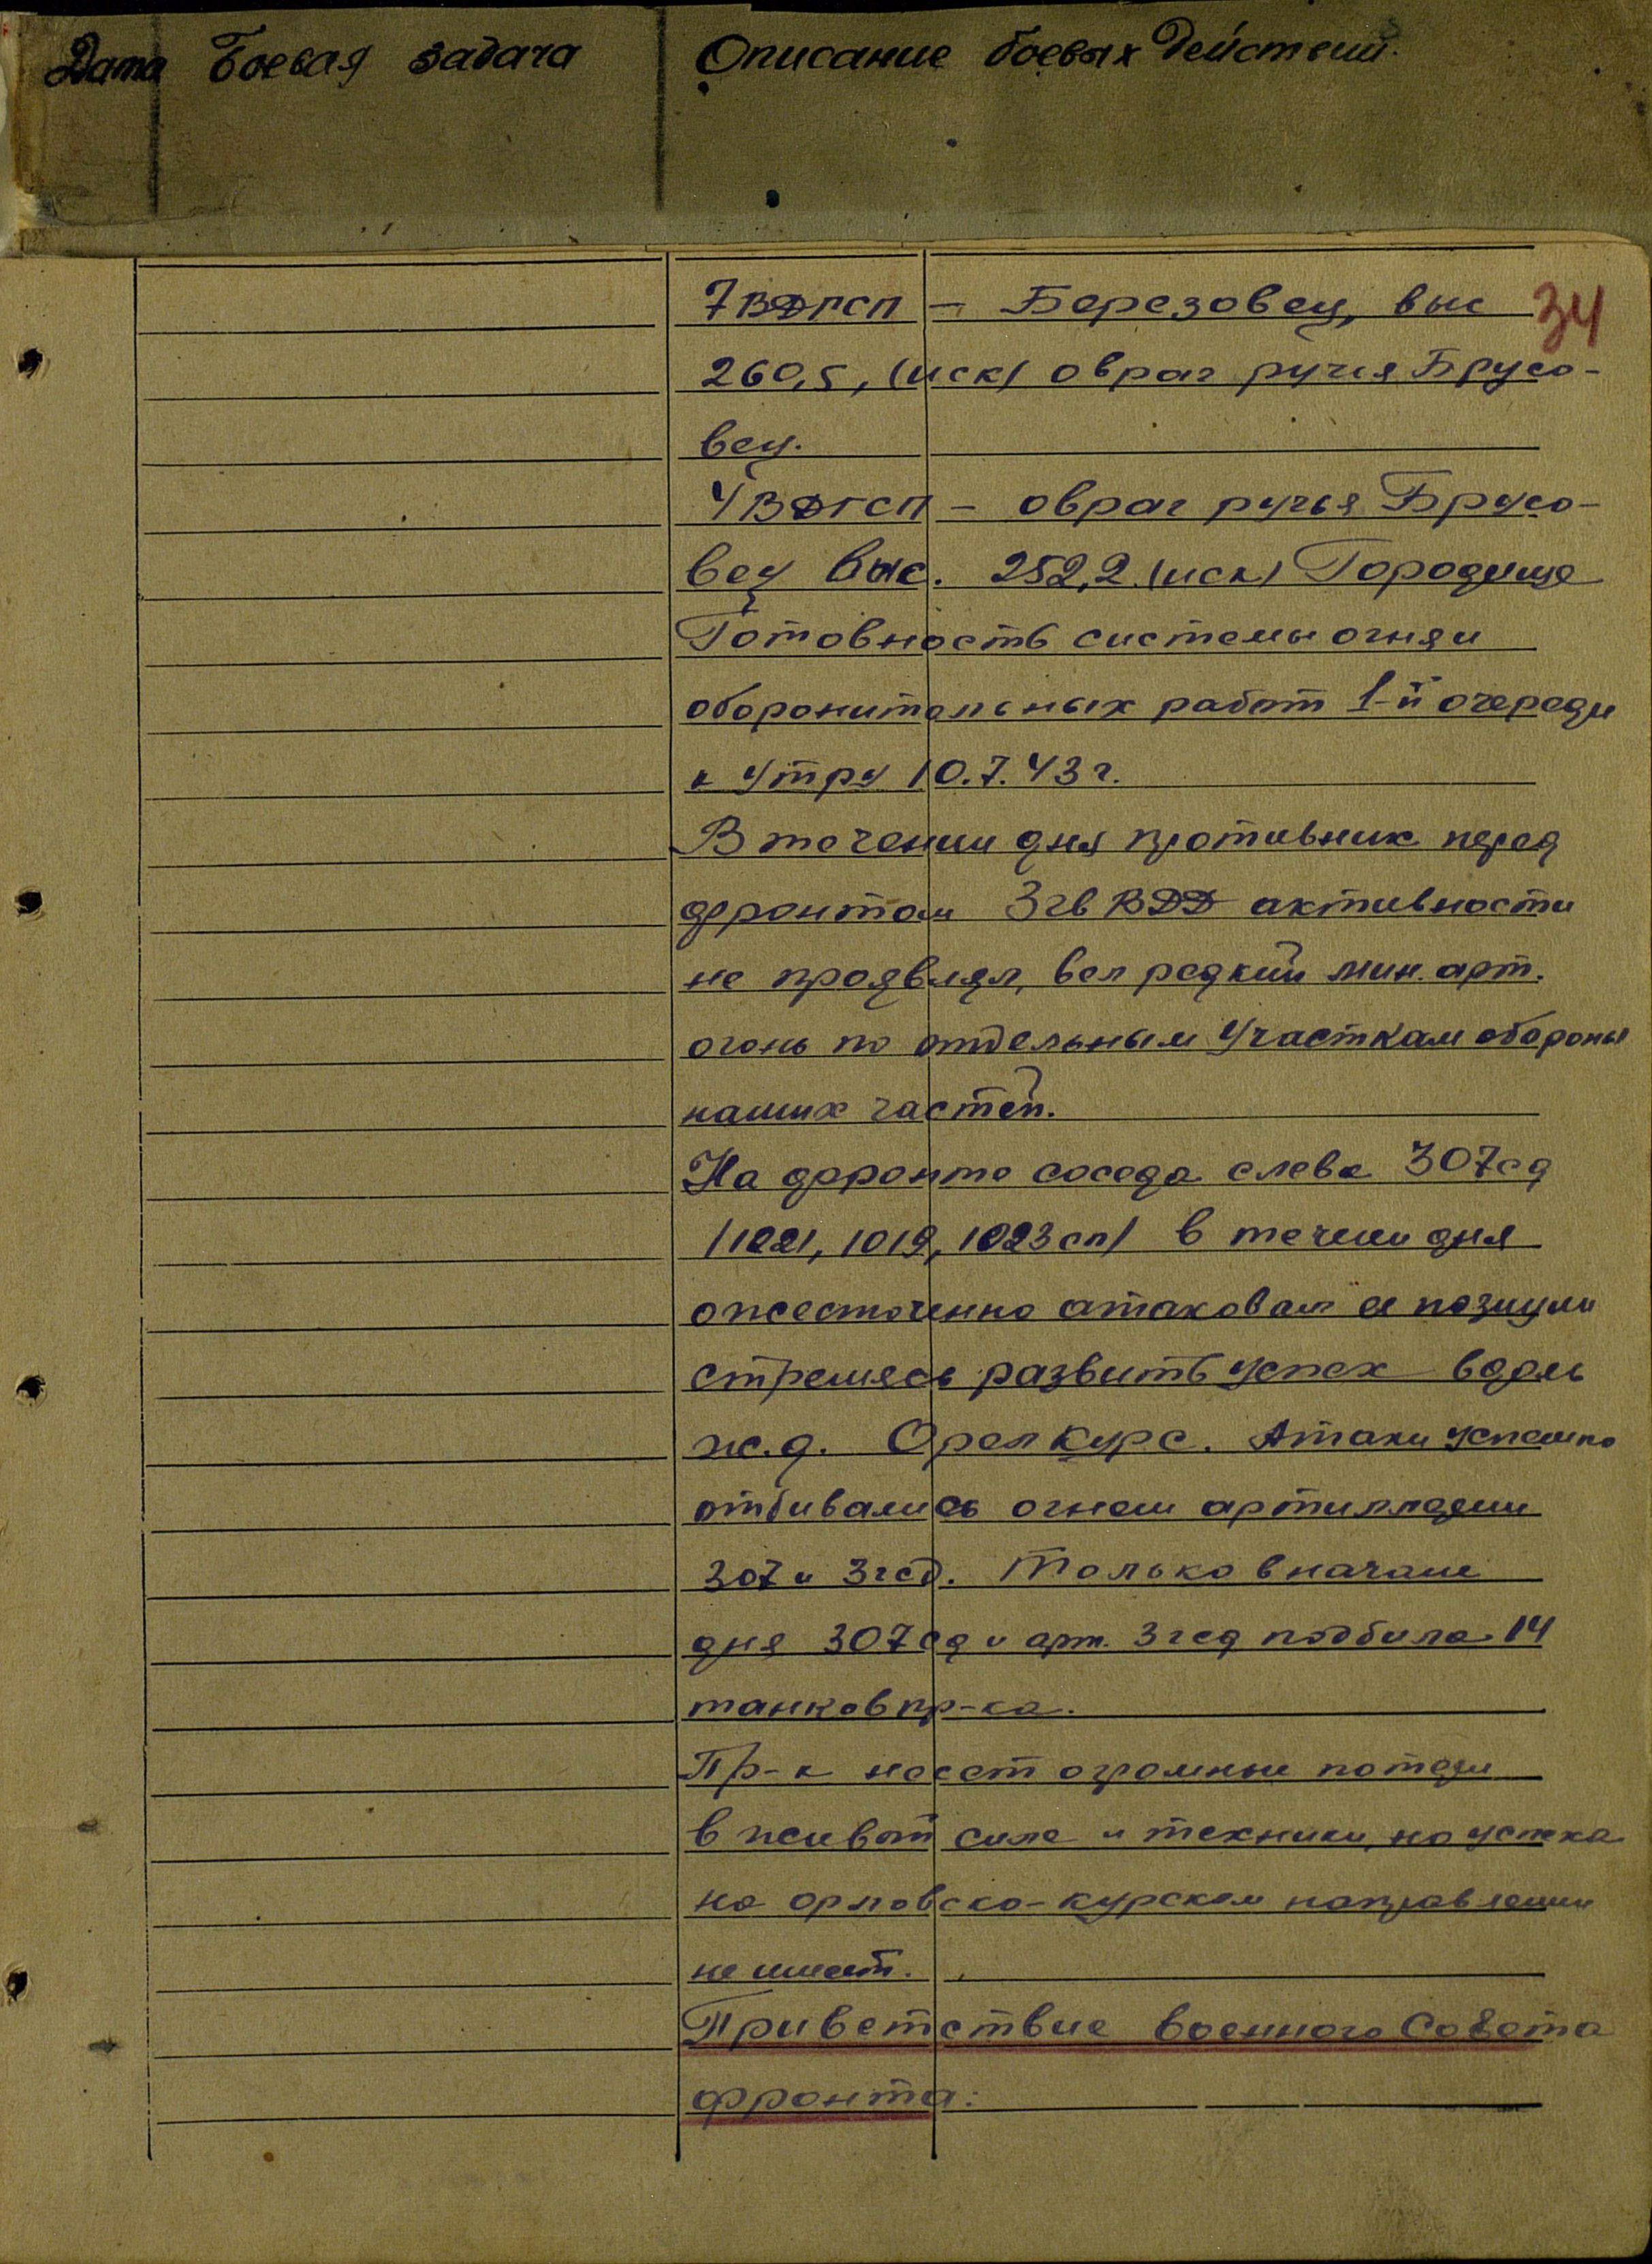 Дата Боевая задача Описание боевых действий.
34
7 ВДГСП – Березовец, выс
260,5, (иск) овраг ручья Брусо-
вец.
4 ВДГСП – овраг ручья Брусо-
вец выс. 252,2 (иск) Городище
Готовность системы огня и
оборонительных работ 1-й очереди
к утру 10.7.43 г.
В течении дня противник перед
фронтом 3 гв ВДД активности
не проявлял, вел редкий мин. арт.
огонь по отдельным участкам обороны
наших частей.
На фронте соседа слева 307 сд
/1021, 1019, 1023 сп/ в течении дня
ожесточенно атаковал ее позиции
стремясь развить успех вдоль
ж.д. Орел Курс. Атаки успешно
отбивались огнем артиллерии
307 и 3 гсд. Только в начале
дня 307 сд и арт. 3 гсд подбила 14
танков пр-ка.
Пр-к несет огромные потери
в живой силе и технике, но успеха
на орловско-курском направлении
не имеет.
Приветствие военного Совета
фронта: